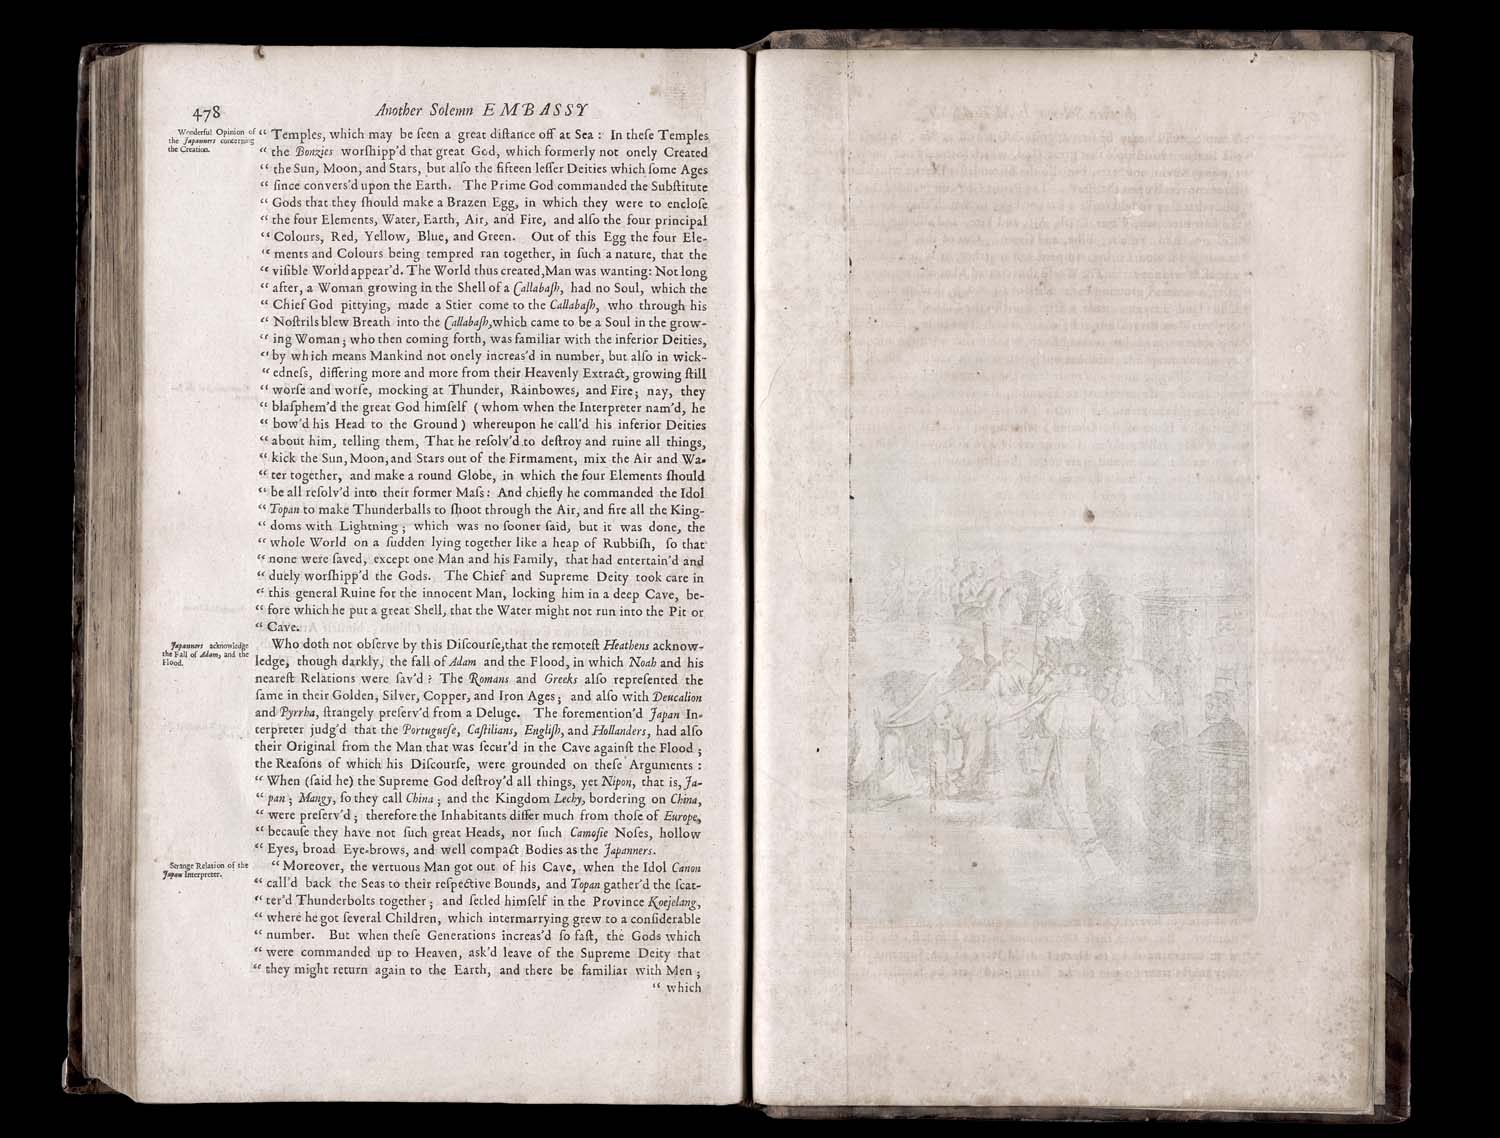 478 Another Solemn EMBASSY
Wonderful Opinion of
the Japanners concerning
the Creation.
“ Temples, which may be ſeen a great diſtance off at Sea : In theſe Temples
“ the Bonzies worſhipp'd that great God, which formerly not onely Created
“ the Sun, Moon, and Stars, but alſo the fifteen leſſer Deities which ſome Ages
“ ſince convers'd upon the Earth. The Prime God commanded the Subſtitute
“ Gods that they ſhould make a Brazen Egg, in which they were to encloſe
“ the four Elements, Water, Earth, Air, and Fire, and alſo the four principal
“ Colours, Red, Yellow, Blue, and Green. Out of this Egg the four Ele-
“ ments and Colours being tempred ran together, in ſuch a nature, that the
“ viſible World appear'd. The World thus created, Man was wanting: Not long
“ after, a Woman growing in the Shell of a Callabaſh, had no Soul, which the
“ Chief God pittying, made a Stier come to the Callabaſh, who through his
“ Noſtrils blew Breath into the Callabaſh, which came to be a Soul in the grow-
“ ing Woman ; who then coming forth, was familiar with the inferior Deities,
“ by which means Mankind not onely increas'd in number, but alſo in wick-
“ edneſs, differing more and more from their Heavenly Extract, growing ſtill
“ worſe and worſe, mocking at Thunder, Rainbowes, and Fire ; nay, they
“ blaſphem'd the great God himſelf ( whom when the Interpreter nam'd, he
“ bow'd his Head to the Ground ) whereupon he call'd his inferior Deities
“ about him, telling them, That he reſolv'd to deſtroy and ruine all things,
“ kick the Sun, Moon, and Stars out of the Firmament, mix the Air and Wa-
“ ter together, and make a round Globe, in which the four Elements ſhould
“ be all reſolv'd into their former Maſs : And chiefly he commanded the Idol
“ Topan to make Thunderballs to ſhoot through the Air, and fire all the King-
“ doms with Lightning ; which was no ſooner ſaid, but it was done, the
“ whole World on a ſudden lying together like a heap of Rubbiſh, ſo that
“ none were ſaved, except one Man and his Family, that had entertain'd and
“ duely worſhipp'd the Gods. The Chief and Supreme Deity took care in
“ this general Ruine for the innocent Man, locking him in a deep Cave, be-
“ fore which he put a great Shell, that the Water might not run into the Pit or
“ Cave.
Japanners acknowledge
the Fall of Adam, and the
Flood.
Who doth not obſerve by this Diſcourſe, that the remoteſt Heathens acknow-
ledge, though darkly, the fall of Adam and the Flood, in which Noah and his
neareſt Relations were ſav'd ? The Romans and Greeks alſo repreſented the
ſame in their Golden, Silver, Copper, and Iron Ages ; and alſo with Deucalion
and Pyrrha, ſtrangely preſerv'd from a Deluge. The foremention'd Japan In-
terpreter judg'd that the Portugueſe, Caſtilians, Engliſh, and Hollanders, had alſo
their Original from the Man that was ſecur'd in the Cave againſt the Flood ;
the Reaſons of which his Diſcourſe, were grounded on theſe Arguments :
“ When (ſaid he) the Supreme God deſtroy'd all things, yet Nipon, that is, Ja-
“ pan ; Mangy, ſo they call China ; and the Kingdom Lechy, bordering on China,
“ were preſerv'd ; therefore the Inhabitants differ much from thoſe of Europe,
“ becauſe they have not ſuch great Heads, nor ſuch Camoſie Noſes, hollow
“ Eyes, broad Eye-brows, and well compact Bodies as the Japanners.
Strange Relation of the
Japan Interpreter.
“ Moreover, the vertuous Man got out of his Cave, when the Idol Canon
“ call'd back the Seas to their reſpective Bounds, and Topan gather'd the ſcat-
“ ter'd Thunderbolts together ; and ſetled himſelf in the Province Koejelang,
“ where he got ſeveral Children, which intermarrying grew to a conſiderable
“ number. But when theſe Generations increas'd ſo faſt, the Gods which
“ were commanded up to Heaven, ask'd leave of the Supreme Deity that
“ they might return again to the Earth, and there be familiar with Men ;
“ which